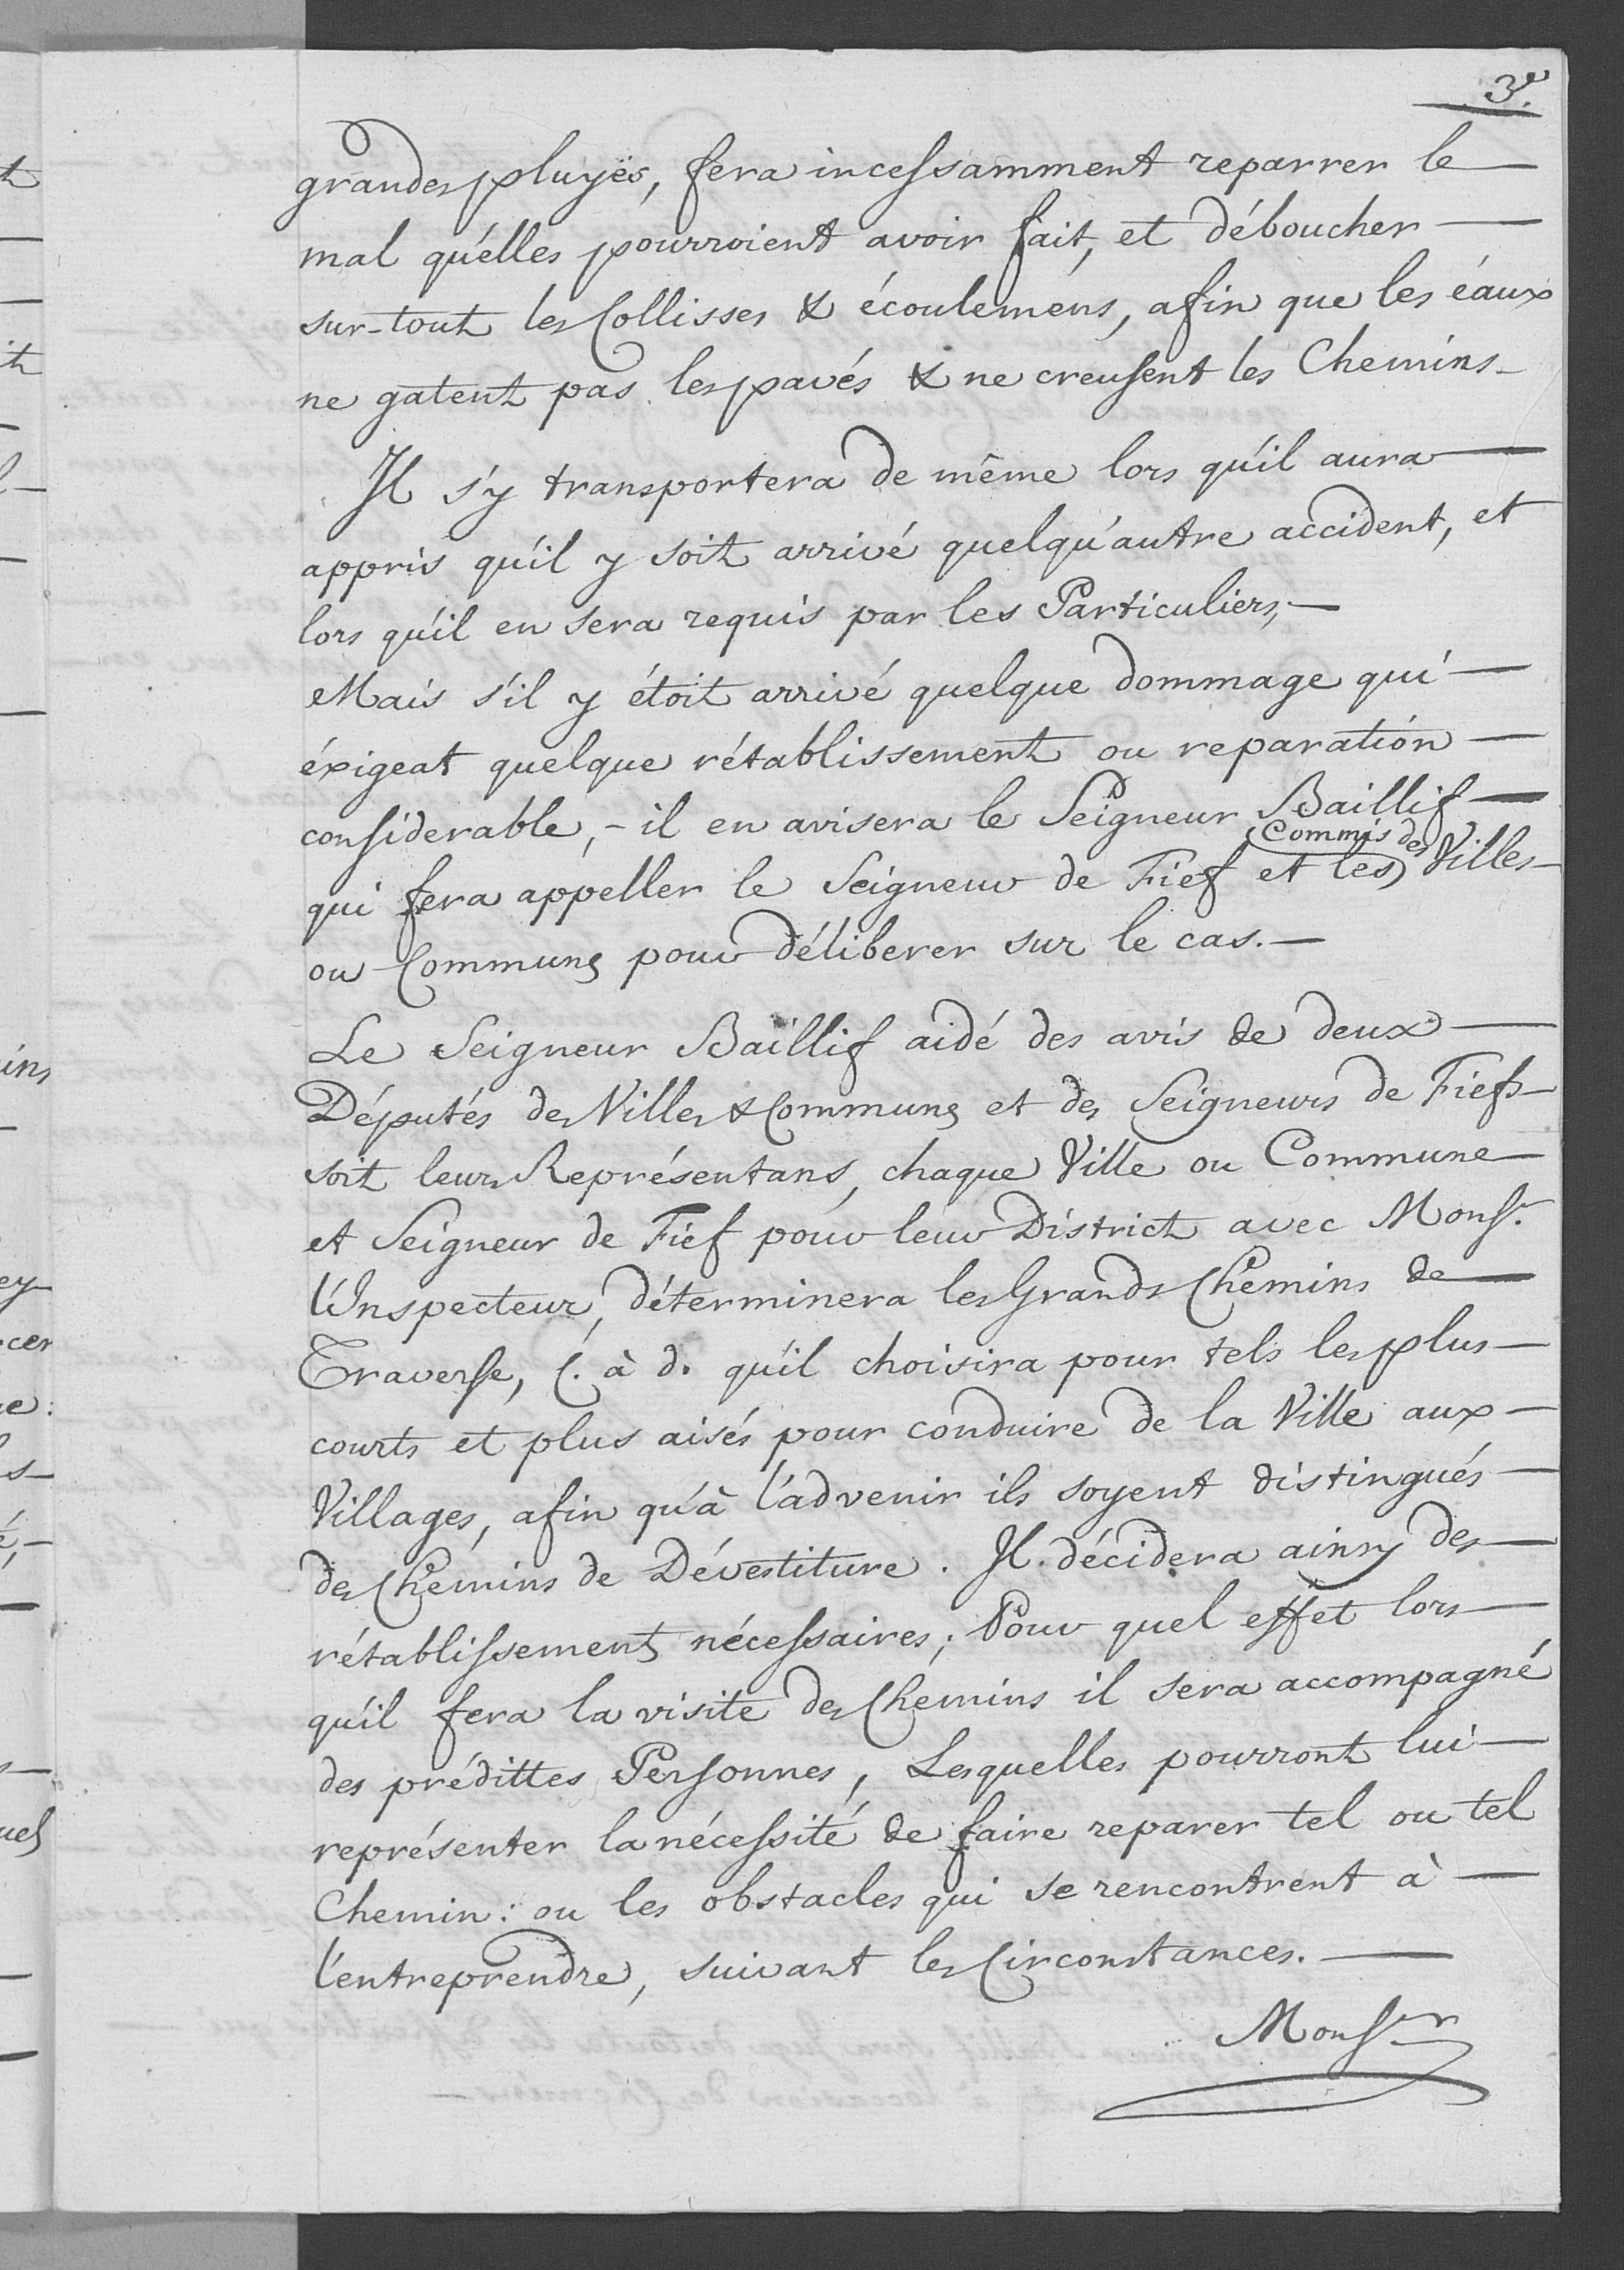 3.e
grandes pluyës, fera incessamment reparrer le
mal qu'elles pourroient avoir fait, et déboucher
sur-tout les Collisses & écoulemens, afin que les éaux
ne gatent pas les pavés & ne creusent les Chemins
Il s'y transportera de même lors qu'il aura
appris qu'il y soit arrivé quelqu'autre accident, et
lors qu'il en sera requis par les Particuliers,
Mais s'il y étoit arrivé quelque dommage qui
éxigeat quelque rétablissement ou reparation
considerable, - il en avisera le Seigneur Baillif
Commis des
qui fera appeller le Seigneur de Fief et les Villes
ou Communs pour déliberer sur le cas.
Le Seigneur Baillif aidé des avis de deux
Députés des Villes & Communs et des Seigneurs de Fiefs
soit leurs Représentans, chaque Ville ou Commune
et Seigneur de Fief pour leur District avec Monsr.
l'Inspecteur, déterminera les Grands Chemins de
Traverse, C. à d. qu'il choisira pour tels les plus
courts et plus aisés pour conduire de la Ville aux
Villages, afin qu'à l'advenir ils soyent distingués
des Chemins de Dévestiture. Il décidera ainsy des
rétablissements nécessaires; Pour quel effet lors
qu'il fera la visite des Chemins il sera accompagné
des prédittes Personnes, Lesquelles pourront lui
représenter la nécessité de faire reparer tel ou tel
Chemin: ou les obstacles qui se rencontrent à
l'entreprendre, suivant les Circonstances.
Monsr